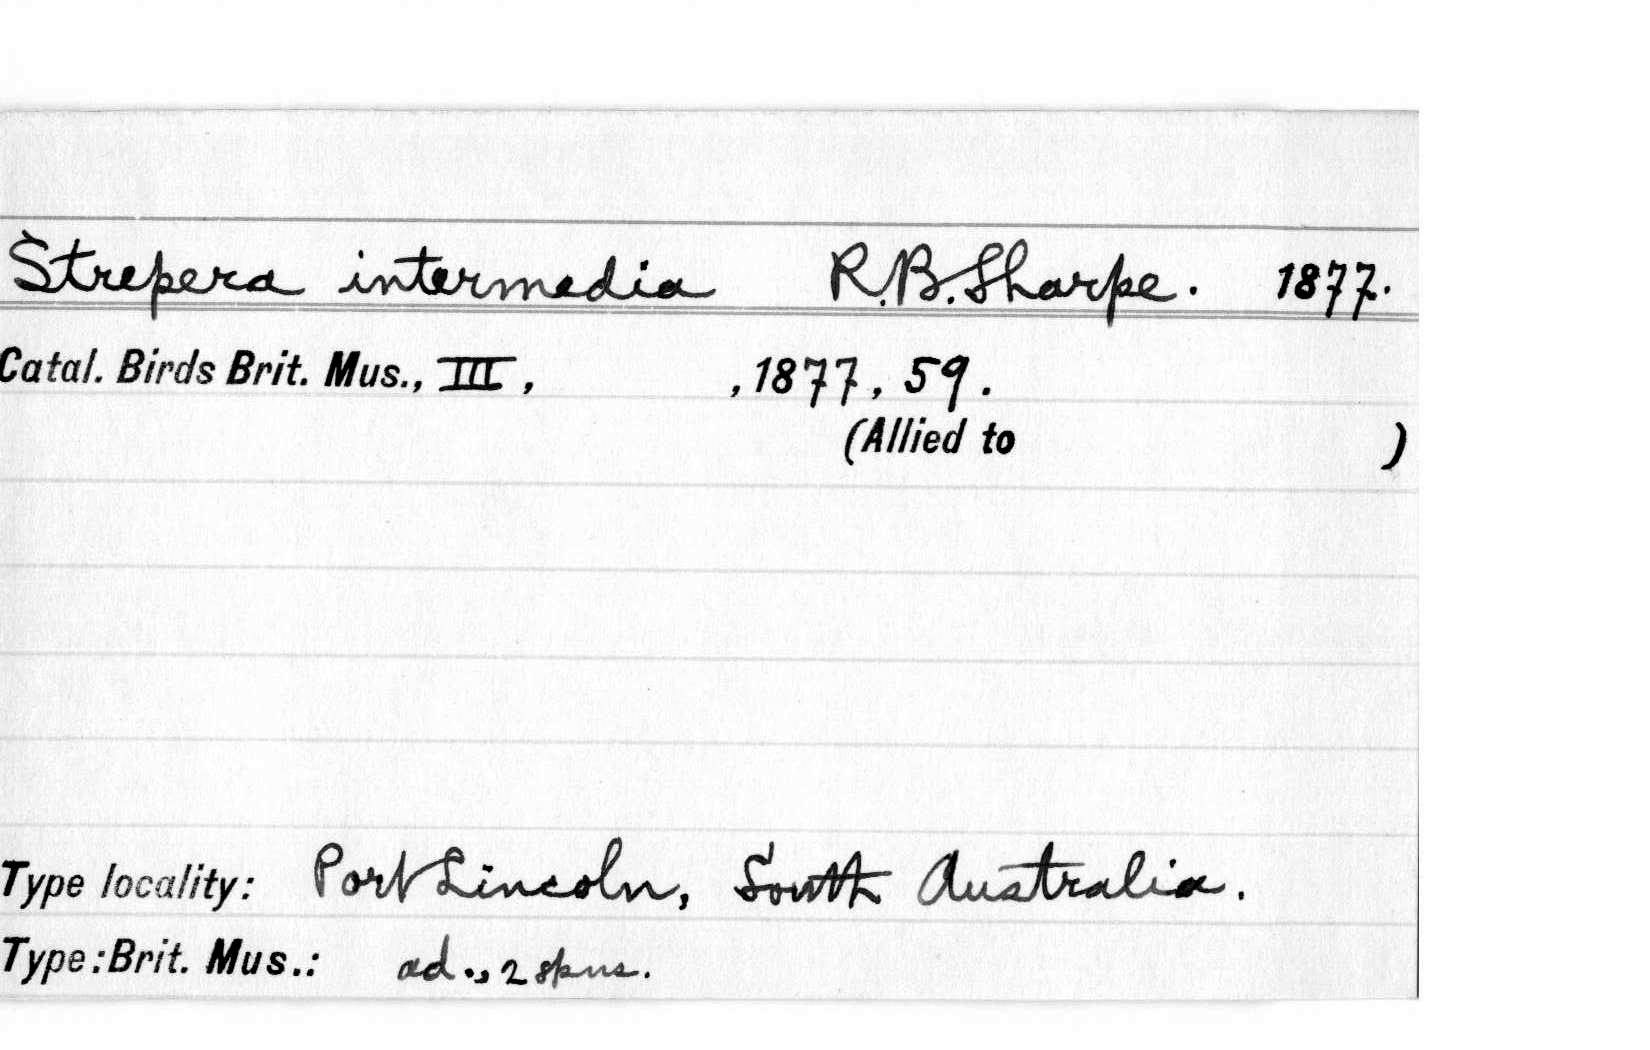 Strepera intermedia R.B. Sharpe. 1877.
Catal. Birds Brit. Mus., III, , 1877, 59.
(Allied to )
Type locality: Port Lincoln, South Australia.
Type: Brit. Mus.: ad., 2 spns.